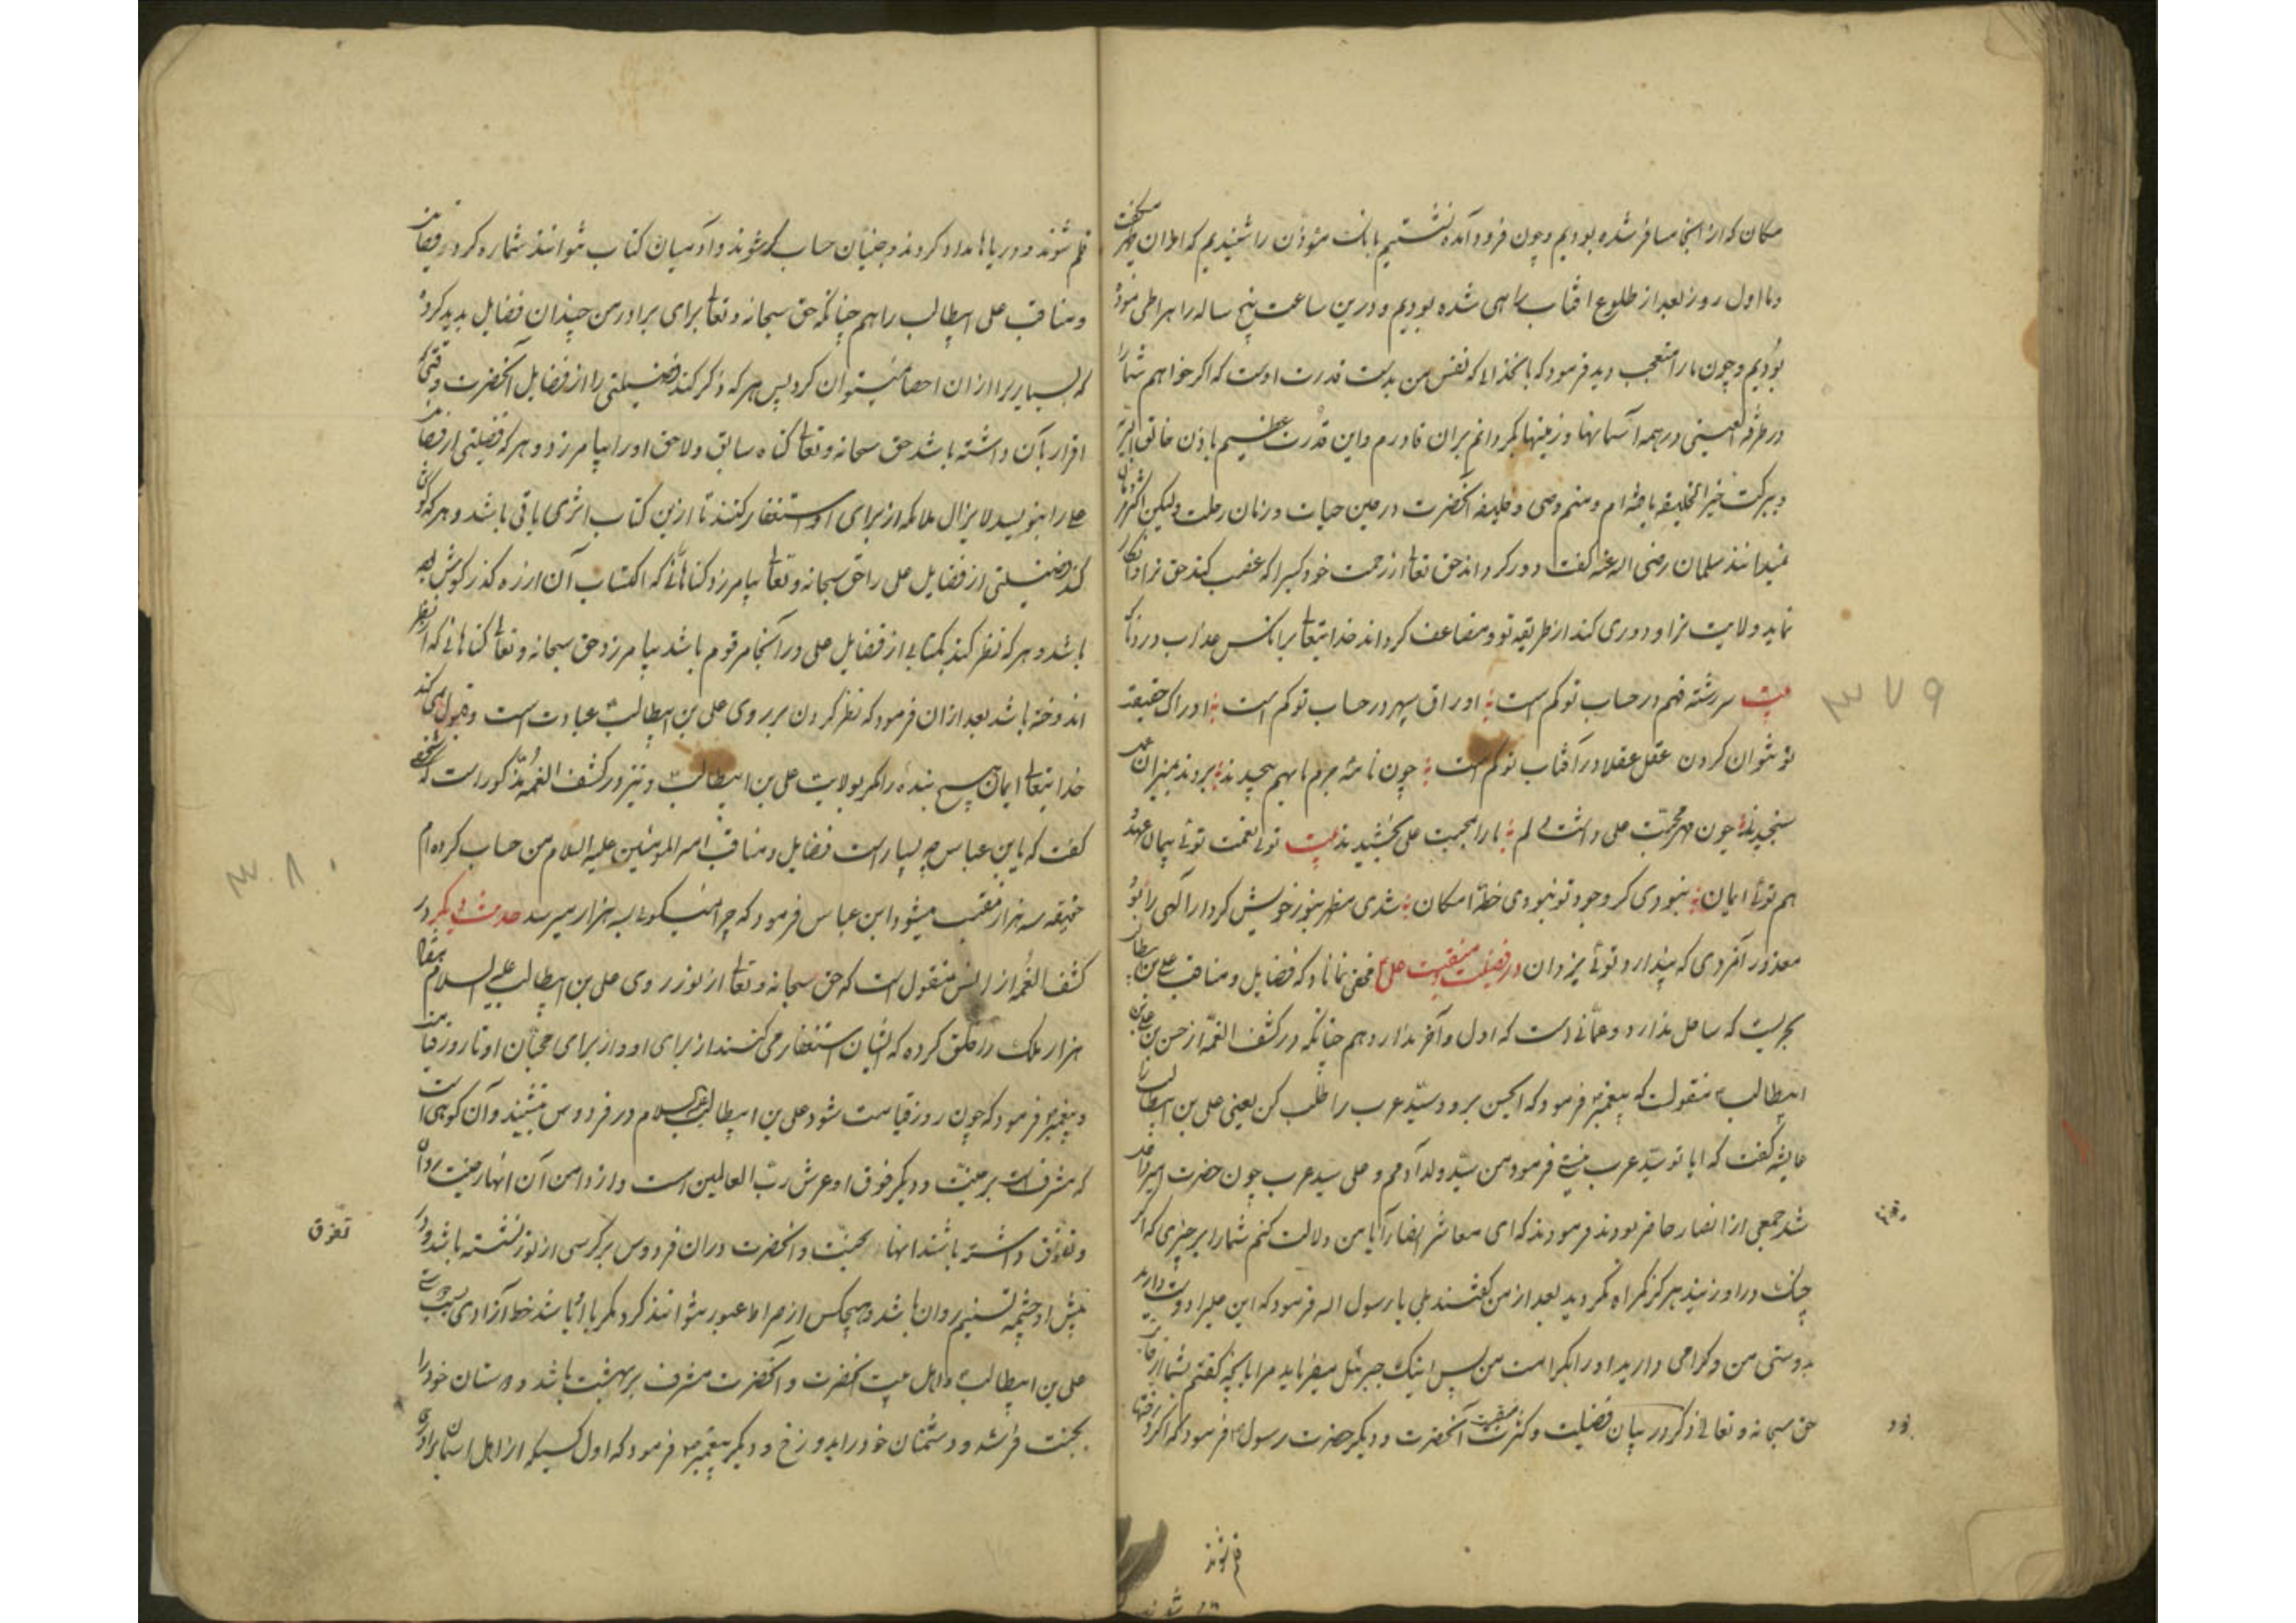 مکان که از انجا مسافر شده بودیم و چون فرود آمده نشستیم بانک مؤذن را شنیدیم که اذان ظهر میگفت
و ما اول روز بعد از طلوع افتاب راهی شده بودیم و درین ساعت پنج ساله راه را طی نموده
بودیم و چون ما را متعجب دید فرمود که بانخدای که نفس من بدست قدرت اوست که اکر خواهم شما را
در طرفة العینی در همه آسمانها و زمینها بکردانم بران قادرم و این قدرت عظیم باذن خالق البریه
و ببرکت خیر الخلیقه یافته ام و منم وصی و خلیفه آنحضرت در حین حیات و زمان رحلت ولیکن اکثر مردمان
نمیدانند سلمان رضی اله عنه کفت دور کرداند حق تعالی از رحمت خود کسیرا که غصب کند حق ترا و انکار
نماید ولایت ترا و دوری کند از طریقه تو و مضاعف کرداند خدایتعالی برانکس عذاب دردناک
بیت سررشته فهم در حساب تو کم است اوراق سپهر در حساب تو کم است ادراک حقیقه
تو نتوان کردن عقل عقلا در آفتاب تو کم است چون نامهٔ جرم ما بهم پیچیدند بردند بمیزان عمل
سنجیدند چون مهر محبت علی داشت دلم ما را بمحبت علی بخشیدند بیت توئی نعمت توئی پیمان عهد
هم توئی ایمان نبودی کر وجود تو نبودی خطهٔ امکان شدی مظهر بنور خویش کردار اکهی را تو
معذور آفردی که پندارد توئی یزدان در فضیلت منقبت علی مخفی نماناد که فضایل و مناقب علی بن ابیطالب
بحریست که ساحل ندارد و عمّانی است که اول و آخر ندارد هم چنانکه در کشف الغمّه از حسن بن علی بن
ابیطالب منقولست که پیغمبر فرمود که ایحسن برو و سیّد عرب را طلب کن یعنی علی بن ابیطالب را
عایشه کفت که ایا تو سیّد عرب نیستی فرمود من سیّد ولد آدمم و علی سید عرب چون حضرت امیر حاضر
شد جمعی از انصار حاضر بودند فرمودند که ای معاشر انصار آیا من دلالت کنم شما را بر چیزی که اکر
چنک در او زنید هرکز کمراه نکردید بعد از من کفتند بلی یا رسول اله فرمود که این علیرا دوست دارید
بدوستی من و کرامی دارید او را بکرامت من پس اینک جبرئیل میفرماید مرا بانچه کفتم بشما از جانب
حق سبحانه و تعالی ذکر در بیان فضیلت و کثرت منقبت آنحضرت و دیکر حضرت رسول فرمود که اکر درختها
قلم شوند
قلم شوند و دریاها مداد کردند و جنیان حساب کر شوند و آدمیان کتاب نتوانند شماره کردن فضایل
و مناقب علی ابیطالب را هم چنانکه حق سبحانه و تعالی برای برادر من چندان فضایل پدید کرده
که بسیار برا از ان احصا نمیتوان کرد پس هر که ذکر کند فضیلتی را از فضایل آنحضرت وقتی که
اقرار بآن داشته باشد حق سبحانه و تعالی کناه سابق و لاحق او را بیامرزد و هر که فضیلتی از فضایل
علی را بنویسد لایزال ملائکه از برای او استغفار کنند تا ازین کتاب اثری باقی باشد و هر که کوش
کند فضیلتی از فضایل علی را حق سبحانه و تعالی بیامرزد کناهانی که اکتساب آن از ره کذر کوش
باشد و هر که نظر کند بکتابی از فضایل علی در آنجا مرقوم باشد بیامرزد حق سبحانه و تعالی کناهانی که از نظر
اندوخته باشد بعد ازان فرمود که نظر کردن بر روی علی بن ابیطالب عبادت است و قبول نمی کند
خدایتعالی ایمان هیچ بنده را مکر بولایت علی بن ابیطالب و نیز در کشف الغمّه مذکور است که شخصی
کفت که یا بن عباس چه بسیار است فضایل و مناقب امیر المومنین علیه السلام من حساب کرده ام
سه هزار منقبت میشود ابن عباس فرمود که چرا نمیکوئی بسه هزار میرسد حدیث دیکر در
کشف الغمّه از انس منقول است که حق سبحانه و تعالی از نور روی علی بن ابیطالب علیه السلام هفتاد
هزار ملک را خلق کرده که ایشان استغفار می کنند از برای او و از برای محبّان او تا روز قیامت
و پیغمبر فرمود که چون روز قیامت شود علی بن ابیطالب علیه السلام در فردوس نشیند و آن کوهی است
که مشرف است بر جنّت و دیکر فوق او عرش ربّ العالمین است و از دامن آن انهار جنت روان
و تعرّق داشته باشد انها بجنّت و انحضرت دران فردوس بر کرسی از نور نشسته باشد و در
پیش او چشمه تسنیم روان باشد و هیچکس از صراط عبور نتوانند کرد مکر با او باشد خط آزادی بسبب دوستی
علی بن ابیطالب و اهل بیت انحضرت و آنحضرت مشرف بر بهشت باشد و دوستان خود را
بجنت فرستد و دشمنان خود را بدوزخ و دیکر پیغمبر فرمود که اول کسیکه از اهل اسمان برادری
تعرق
۳۷۹
۳۸۰